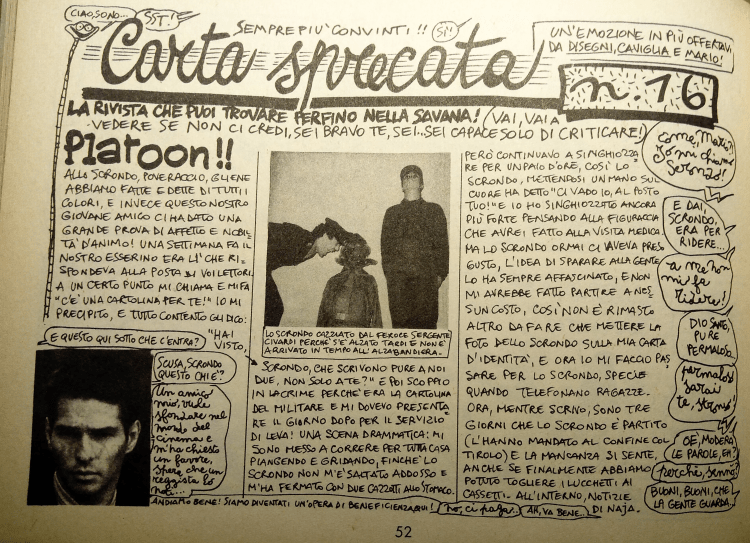 CIAO, SONO...
SST!
SEMPRE PIU' CONVINTI!!
SI!
UN'EMOZIONE IN PIÙ OFFERTAVI
DA DISEGNI, CAVIGLIA E MARIO!
Carta sprecata
n.16
LA RIVISTA CHE PUOI TROVARE PERFINO NELLA SAVANA! (VAI, VAI A
VEDERE SE NON CI CREDI, SEI BRAVO TE, SEI...SEI CAPACE SOLO DI CRITICARE!)
Platoon!!
ALLO SCRONDO, POVERACCIO, GLIENE
ABBIAMO FATTE E DETTE DI TUTTI I
COLORI, E INVECE QUESTO NOSTRO
GIOVANE AMICO CI HA DATO UNA
GRANDE PROVA DI AFFETTO E NOBIL
TÀ D'ANIMO! UNA SETTIMANA FA IL
NOSTRO ESSERINO ERA LI' CHE RI-
SPONDEVA ALLA POSTA DI VOI LETTORI,
A UN CERTO PUNTO MI CHIAMA E MI FA
"C'È UNA CARTOLINA PER TE!" IO MI
PRECIPITO, E TUTTO CONTENTO GLI DICO:
"HAI
VISTO,
E QUESTO QUI SOTTO CHE C'ENTRA?
SCUSA, SCRONDO
QUESTO CHI È?
Un amico
mio, vuole
sfondare nel
mondo del
cinema e
m'ha chiesto
un favore,
spera che un
reggista lo
noti...
ANDIAMO BENE! SIAMO DIVENTATI UN'OPERA DI BENEFICIENZA QUI!
No, ci paga..
AH, VA BENE...
LO SCRONDO CAZZIATO DAL FEROCE SERGENTE
CIVARDI PERCHÈ S'È ALZATO TARDI E NON È
ARRIVATO IN TEMPO ALL'ALZABANDIERA.
SCRONDO, CHE SCRIVONO PURE A NOI
DUE, NON SOLO A TE?" E POI SCOPPIO
IN LACRIME PERCHÈ ERA LA CARTOLINA
DEL MILITARE E MI DOVEVO PRESENTA
RE IL GIORNO DOPO PER IL SERVIZIO
DI LEVA! UNA SCENA DRAMMATICA: MI
SONO MESSO A CORRERE PER TUTTA CASA
PIANGENDO E GRIDANDO, FINCHE' LO
SCRONDO NON M'È SALTATO ADDOSSO E
M'HA FERMATO CON DUE CAZZOTTI ALLO STOMACO.
PERÒ CONTINUAVO A SINGHIOZZA
RE PER UN PAIO D'ORE, COSÌ LO
SCRONDO, METTENDOSI UN MANO SUL
CUORE HA DETTO "CI VADO IO, AL POSTO
TUO!" E IO HO SINGHIOZZATO ANCORA
PIÙ FORTE PENSANDO ALLA FIGURACCIA
CHE AVREI FATTO ALLA VISITA MEDICA.
MA LO SCRONDO ORMAI CI AVEVA PRESO
GUSTO, L'IDEA DI SPARARE ALLA GENTE
LO HA SEMPRE AFFASCINATO, E NON
MI AVREBBE FATTO PARTIRE A NES
SUN COSTO, COSÌ NON È RIMASTO
ALTRO DA FARE CHE METTERE LA
FOTO DELLO SCRONDO SULLA MIA CARTA
D'IDENTITÀ, E ORA IO MI FACCIO PAS
SARE PER LO SCRONDO, SPECIE
QUANDO TELEFONANO RAGAZZE.
ORA, MENTRE SCRIVO, SONO TRE
GIORNI CHE LO SCRONDO È PARTITO
(L'HANNO MANDATO AL CONFINE COL
TIROLO) E LA MANCANZA SI SENTE,
ANCHE SE FINALMENTE ABBIAMO
POTUTO TOGLIERE I LUCCHETTI AI
CASSETTI. ALL'INTERNO, NOTIZIE
DI NAJA.
come, Mario?
Io mi chiamo
Scrondo!
E DAI,
SCRONDO,
ERA PER
RIDERE...
a me non
mi fa
ridere!
DIO SANTO,
PURE
PERMALOSO
permaloso
sarai
te, stronzo!
OÈ, MODERA
LE PAROLE, EH?
perchè, sennò?
BUONI, BUONI, CHE
LA GENTE GUARDA...
52